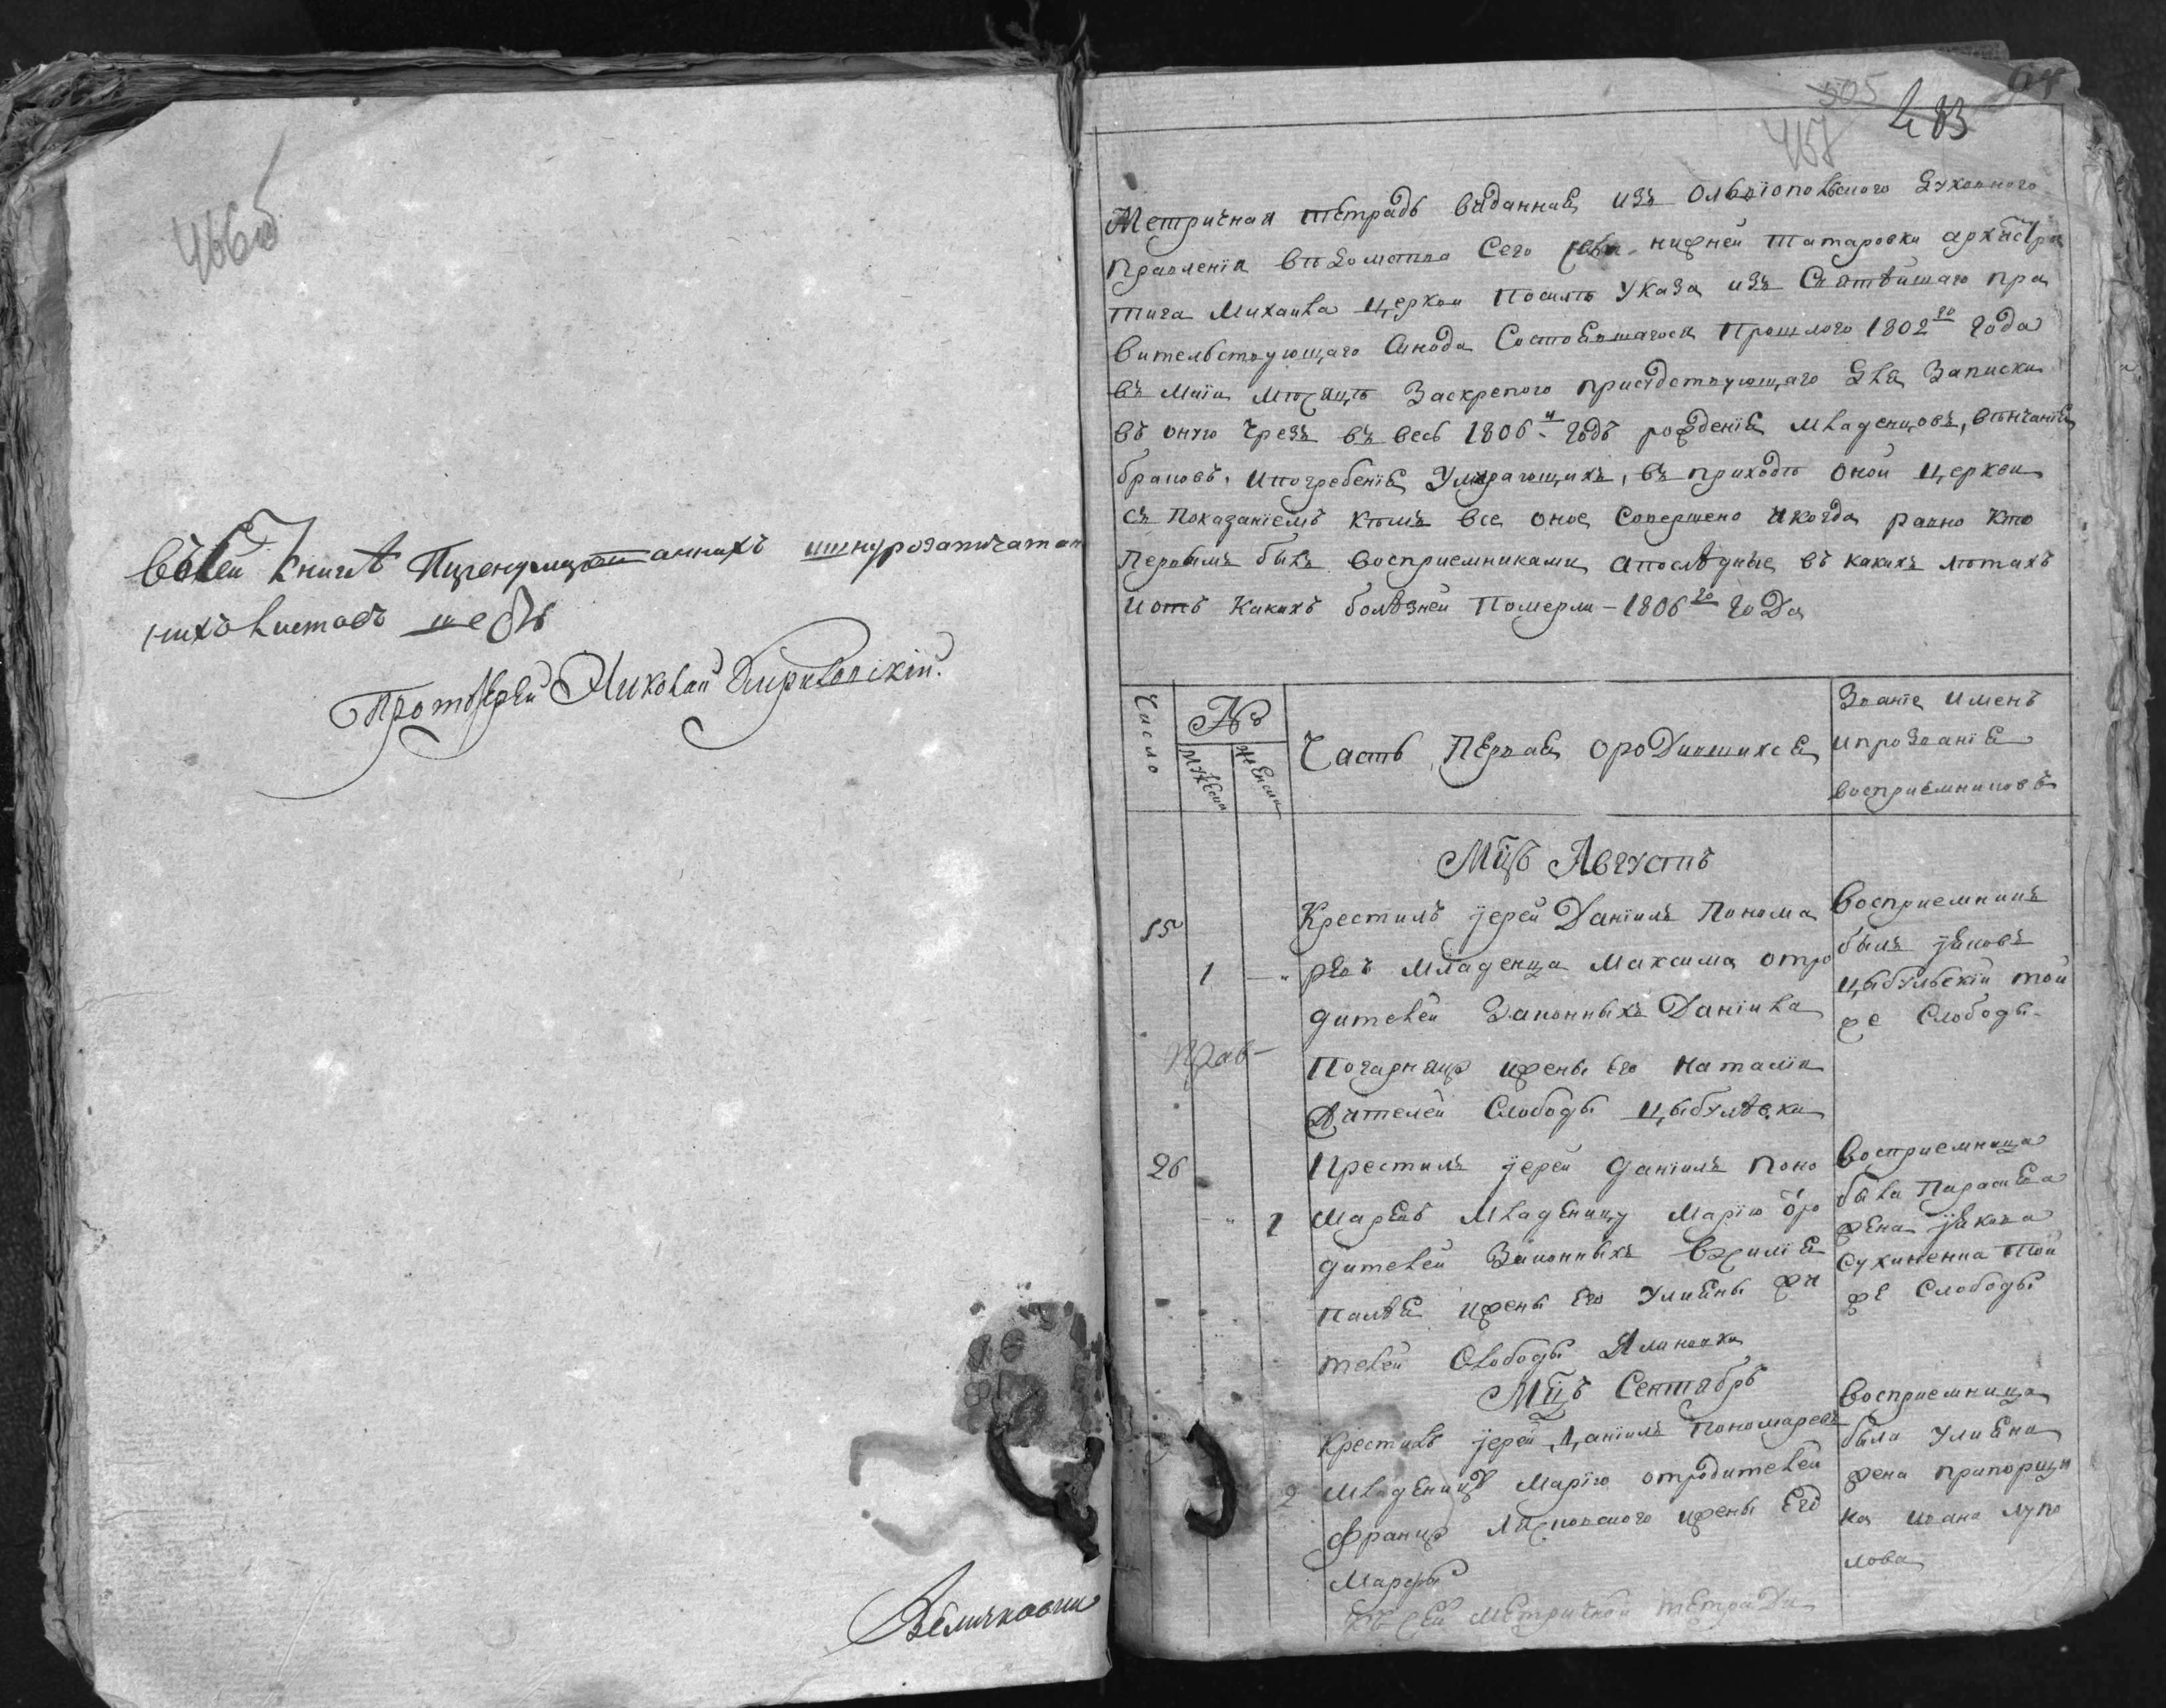 466об
Въ сей книгѣ Пуренумерованнихъ шнурозапечатан
нихъ листовъ шесть
Протоіерей Николай
505
483
467
Метричная тетрадь виданная изъ Ольвіопольского Духовного
Правленія въ ведомства Сего села нижней Татаровки архистра
тига Михаила церкви Посилѣ Указа изъ Святѣйшаго пра
вительствующаго Синода Состоявшагося Прошлого 1802го Года
въ Маіи Мѣсяцѣ Заскрепою присудствующаго Для Записки
въ оную чрезъ въ весь 1806й Годъ рожденія Младенцовъ, вѣнчанія
браковъ, ипогребенія Умирающихъ, въ приходѣ оной церкви
съ Показаніемъ кѣмъ все оное Совершено икогда равно кто
первымъ былъ восприемниками апослѣдные въ какихъ лѣтахъ
иотъ Какихъ болѣзней Померли - 1806го Года
Число
№
Мужеска
Женска
Часть Первая ородившихся
Званіе именъ
ипрозваніе
восприемниковъ
Мцъ Августъ
15
1
Крестилъ іерей Даніилъ Понома
ревъ Младенца Максима отро
дителей Законныхъ Даніила
ижены его Наталіи
Жителей Слободы Цыбулѣвки
Восприемникъ
былъ іяковъ
Цыбульскій той
же Слободы
прав-
26
1
Крестилъ іерей Даніилъ Поно
маревъ Младеницу Марію отро
дителей Законныхъ Василія
Палѣя ижены его Улияны жи
телей Слободы
Восприемница
была Параскева
жена іякова
Сухиненка Той
же Слободы
Мцъ Сентябръ
2
Крестилъ іерей Даніилъ Пономаревъ
Младеницу Марію отродителей
ижены Его
Марфы
Восприемница
была Улияна
жена прапорщи
ка ивана Лупо
лова
Къ сей Метричной тетради